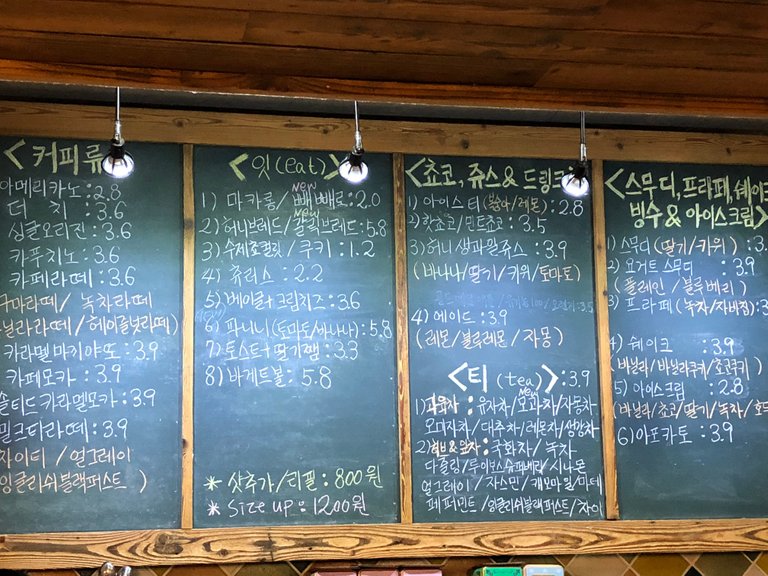 <커피류
아메리카노:2.8
더 치 :3.6
싱글오리진:3.6
카푸치노:3.6
카페라떼:3.6
구마라떼/ 녹차라떼
닐라라떼/헤이즐넛라떼)
카라멜마키야또:3.9
카페모카:3.9
솔티드카라멜모카:3.9
밀크티라떼:3.9
차이티/얼그레이
잉글리쉬블랙퍼스트 )
<잇(eat)>
new
1) 마카롱/빼빼로:2.0
new
2)허니브레드/갈릭브레드:5.8
3)수제초코칩/쿠키:1.2
4) 츄러스:2.2
5)베이글+크림치즈:3.6
new
6)파니니(토마토/바나나):5.8
7)토스트+딸기잼:3.3
8)바게트볼:5.8
*샷추가/리필:800원
*Size up:1200원
<쵸코,쥬스&드링크
1)아이스티(복숭아/레몬):2.8
2)핫쵸코/민트쵸코:3.5
3)허니생과일쥬스:3.9
(바나나/딸기/키위/토마토)
4)에이드:3.9
(레몬/블루레몬/자몽)
<티(tea)>:3.9
new
1)과일차:유자차/모과차/자몽차
오미자차/대추차/레몬차/생강차
2)허브&잎차:국화차/녹차
다즐링/루이보스슈퍼베리/시나몬
얼그레이/자스민/캐모마일/마테
페퍼민트/잉글리쉬블랙퍼스트/차이
<스무디,프라페,쉐이크
빙수&아이스크림>
1)스무디(딸기/키위):3.
2)요거트스무디:3.9
(플레인/블루베리)
3)프라페(녹차/자바칩):3
4)쉐이크:3.9
(바닐라/바닐라쿠키/쵸코쿠키)
5)아이스크림:2.8
(바닐라/쵸코/딸기/녹차/호두
6)아포카토:3.9